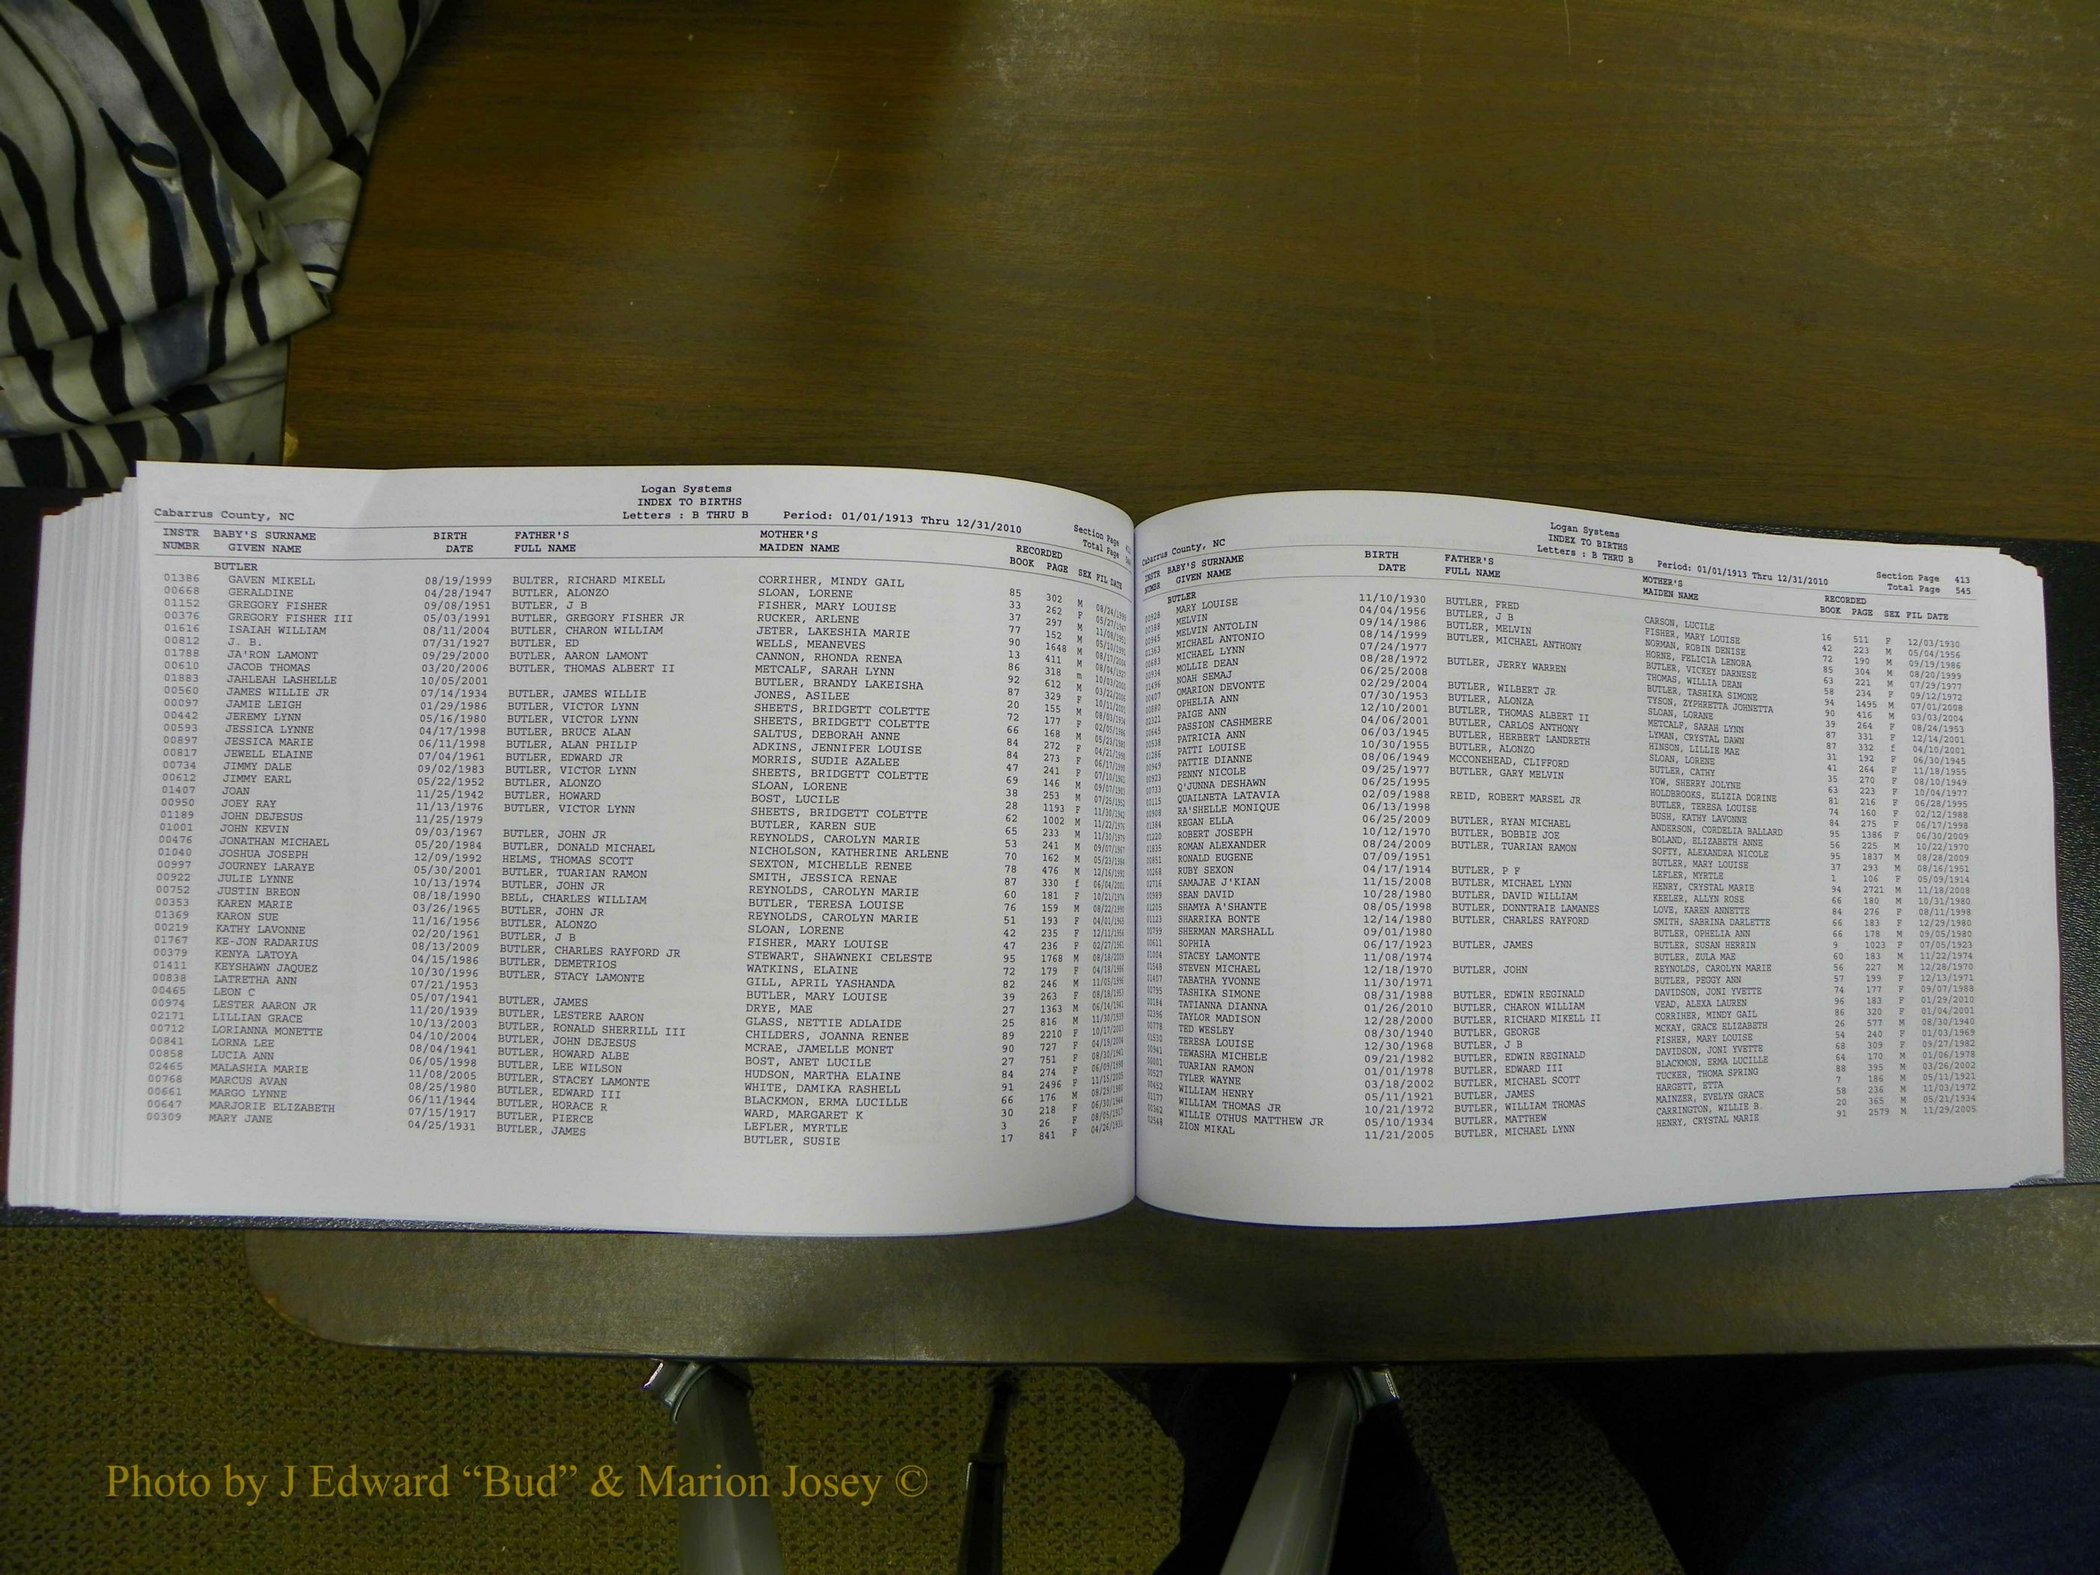 Logan Systems
INDEX TO BIRTHS
Cabarrus County, NC Letters : B THRU B Period: 01/01/1913 Thru 12/31/2010 Section Page
Total Page
INSTR BABY'S SURNAME BIRTH FATHER'S MOTHER'S RECORDED
NUMBR GIVEN NAME DATE FULL NAME MAIDEN NAME BOOK PAGE SEX FIL DATE
BUTLER
01386 GAVEN MIKELL 08/19/1999 BULTER, RICHARD MIKELL CORRIHER, MINDY GAIL 85 302 M 08/24/1999
00668 GERALDINE 04/28/1947 BUTLER, ALONZO SLOAN, LORENE 33 262 F 05/27/1947
01152 GREGORY FISHER 09/08/1951 BUTLER, J B FISHER, MARY LOUISE 37 297 M 11/08/1951
00376 GREGORY FISHER III 05/03/1991 BUTLER, GREGORY FISHER JR RUCKER, ARLENE 77 152 M 05/10/1991
01616 ISAIAH WILLIAM 08/11/2004 BUTLER, CHARON WILLIAM JETER, LAKESHIA MARIE 90 1648 M 08/17/2004
00812 J. B. 07/31/1927 BUTLER, ED WELLS, MEANEVES 13 411 M 08/04/1927
01788 JA'RON LAMONT 09/29/2000 BUTLER, AARON LAMONT CANNON, RHONDA RENEA 86 318 m 10/03/2000
00610 JACOB THOMAS 03/20/2006 BUTLER, THOMAS ALBERT II METCALF, SARAH LYNN 92 612 M 03/22/2006
01883 JAHLEAH LASHELLE 10/05/2001 BUTLER, BRANDY LAKEISHA 87 329 F 10/11/2001
00560 JAMES WILLIE JR 07/14/1934 BUTLER, JAMES WILLIE JONES, ASILEE 20 155 M 08/03/1934
00097 JAMIE LEIGH 01/29/1986 BUTLER, VICTOR LYNN SHEETS, BRIDGETT COLETTE 72 177 F 02/05/1986
00442 JEREMY LYNN 05/16/1980 BUTLER, VICTOR LYNN SHEETS, BRIDGETT COLETTE 66 168 M 05/23/1980
00593 JESSICA LYNNE 04/17/1998 BUTLER, BRUCE ALAN SALTUS, DEBORAH ANNE 84 272 F 04/21/1998
00897 JESSICA MARIE 06/11/1998 BUTLER, ALAN PHILIP ADKINS, JENNIFER LOUISE 84 273 F 06/17/1998
00817 JEWELL ELAINE 07/04/1961 BUTLER, EDWARD JR MORRIS, SUDIE AZALEE 47 241 F 07/10/1961
00734 JIMMY DALE 09/02/1983 BUTLER, VICTOR LYNN SHEETS, BRIDGETT COLETTE 69 146 M 09/07/1983
00612 JIMMY EARL 05/22/1952 BUTLER, ALONZO SLOAN, LORENE 38 253 M 07/25/1952
01407 JOAN 11/25/1942 BUTLER, HOWARD BOST, LUCILE 28 1193 F 11/30/1942
00950 JOEY RAY 11/13/1976 BUTLER, VICTOR LYNN SHEETS, BRIDGETT COLETTE 62 1002 M 11/22/1976
01189 JOHN DEJESUS 11/25/1979 BUTLER, KAREN SUE 65 233 M 11/30/1979
01001 JOHN KEVIN 09/03/1967 BUTLER, JOHN JR REYNOLDS, CAROLYN MARIE 53 241 M 09/07/1967
00476 JONATHAN MICHAEL 05/20/1984 BUTLER, DONALD MICHAEL NICHOLSON, KATHERINE ARLENE 70 162 M 05/23/1984
01040 JOSHUA JOSEPH 12/09/1992 HELMS, THOMAS SCOTT SEXTON, MICHELLE RENEE 78 476 M 12/16/1992
00997 JOURNEY LARAYE 05/30/2001 BUTLER, TUARIAN RAMON SMITH, JESSICA RENAE 87 330 f 06/04/2001
00922 JULIE LYNNE 10/13/1974 BUTLER, JOHN JR REYNOLDS, CAROLYN MARIE 60 181 F 10/21/1974
00752 JUSTIN BREON 08/18/1990 BELL, CHARLES WILLIAM BUTLER, TERESA LOUISE 76 159 M 08/22/1990
00353 KAREN MARIE 03/26/1965 BUTLER, JOHN JR REYNOLDS, CAROLYN MARIE 51 193 F 04/01/1965
01369 KARON SUE 11/16/1956 BUTLER, ALONZO SLOAN, LORENE 42 235 F 12/11/1956
00219 KATHY LAVONNE 02/20/1961 BUTLER, J B FISHER, MARY LOUISE 47 236 F 02/27/1961
01767 KE-JON RADARIUS 08/13/2009 BUTLER, CHARLES RAYFORD JR STEWART, SHAWNEKI CELESTE 95 1768 M 08/18/2009
00379 KENYA LATOYA 04/15/1986 BUTLER, DEMETRIOS WATKINS, ELAINE 72 179 F 04/18/1986
01411 KEYSHAWN JAQUEZ 10/30/1996 BUTLER, STACY LAMONTE GILL, APRIL YASHANDA 82 246 M 11/05/1996
00838 LATRETHA ANN 07/21/1953 BUTLER, MARY LOUISE 39 263 F 08/18/1953
00465 LEON C 05/07/1941 BUTLER, JAMES DRYE, MAE 27 1363 M 06/14/1941
00974 LESTER AARON JR 11/20/1939 BUTLER, LESTERE AARON GLASS, NETTIE ADLAIDE 25 816 M 11/30/1939
02171 LILLIAN GRACE 10/13/2003 BUTLER, RONALD SHERRILL III CHILDERS, JOANNA RENEE 89 2210 F 10/17/2003
00712 LORIANNA MONETTE 04/10/2004 BUTLER, JOHN DEJESUS MCRAE, JAMELLE MONET 90 727 F 04/19/2004
00841 LORNA LEE 08/04/1941 BUTLER, HOWARD ALBE BOST, ANET LUCILE 27 751 F 08/10/1941
00858 LUCIA ANN 06/05/1998 BUTLER, LEE WILSON HUDSON, MARTHA ELAINE 84 274 F 06/09/1998
02465 MALASHIA MARIE 11/08/2005 BUTLER, STACEY LAMONTE WHITE, DAMIKA RASHELL 91 2496 F 11/15/2005
00768 MARCUS AVAN 08/25/1980 BUTLER, EDWARD III BLACKMON, ERMA LUCILLE 66 176 M 08/29/1980
00661 MARGO LYNNE 06/11/1944 BUTLER, HORACE R WARD, MARGARET K 30 218 F 06/30/1944
00647 MARJORIE ELIZABETH 07/15/1917 BUTLER, PIERCE LEFLER, MYRTLE 3 26 F 08/05/1917
00309 MARY JANE 04/25/1931 BUTLER, JAMES BUTLER, SUSIE 17 841 F 04/26/1931
Logan Systems
INDEX TO BIRTHS
Cabarrus County, NC Letters : B THRU B Period: 01/01/1913 Thru 12/31/2010 Section Page 413
Total Page 545
INSTR BABY'S SURNAME BIRTH FATHER'S MOTHER'S RECORDED
NUMBR GIVEN NAME DATE FULL NAME MAIDEN NAME BOOK PAGE SEX FIL DATE
BUTLER
00928 MARY LOUISE 11/10/1930 BUTLER, FRED CARSON, LUCILE 16 511 F 12/03/1930
00388 MELVIN 04/04/1956 BUTLER, J B FISHER, MARY LOUISE 42 223 M 05/04/1956
00945 MELVIN ANTOLIN 09/14/1986 BUTLER, MELVIN NORMAN, ROBIN DENISE 72 190 M 09/19/1986
01363 MICHAEL ANTONIO 08/14/1999 BUTLER, MICHAEL ANTHONY HORNE, FELICIA LENORA 85 304 M 08/20/1999
00683 MICHAEL LYNN 07/24/1977 BUTLER, VICKEY DARNESE 63 221 M 07/29/1977
00934 MOLLIE DEAN 08/28/1972 BUTLER, JERRY WARREN THOMAS, WILLIA DEAN 58 234 F 09/12/1972
01496 NOAH SEMAJ 06/25/2008 BUTLER, TASHIKA SIMONE 94 1495 M 07/01/2008
00407 OMARION DEVONTE 02/29/2004 BUTLER, WILBERT JR TYSON, ZYPHRETTA JOHNETTA 90 416 M 03/03/2004
00880 OPHELIA ANN 07/30/1953 BUTLER, ALONZA SLOAN, LORANE 39 264 F 08/24/1953
02321 PAIGE ANN 12/10/2001 BUTLER, THOMAS ALBERT II METCALF, SARAH LYNN 87 331 F 12/14/2001
00645 PASSION CASHMERE 04/06/2001 BUTLER, CARLOS ANTHONY LYMAN, CRYSTAL DAWN 87 332 f 04/10/2001
00538 PATRICIA ANN 06/03/1945 BUTLER, HERBERT LANDRETH HINSON, LILLIE MAE 31 192 F 06/30/1945
01286 PATTI LOUISE 10/30/1955 BUTLER, ALONZO SLOAN, LORENE 41 264 F 11/18/1955
00949 PATTIE DIANNE 08/06/1949 MCCONEHEAD, CLIFFORD BUTLER, CATHY 35 270 F 08/10/1949
00923 PENNY NICOLE 09/25/1977 BUTLER, GARY MELVIN YOW, SHERRY JOLYNE 63 223 F 10/04/1977
00733 Q'JUNNA DESHAWN 06/25/1995 HOLDBROOKS, ELIZIA DORINE 81 216 F 06/28/1995
00115 QUAILNETA LATAVIA 02/09/1988 REID, ROBERT MARSEL JR BUTLER, TERESA LOUISE 74 160 F 02/12/1988
00908 RA'SHELLE MONIQUE 06/13/1998 BUSH, KATHY LAVONNE 84 275 F 06/17/1998
01384 REGAN ELLA 06/25/2009 BUTLER, RYAN MICHAEL ANDERSON, CORDELIA BALLARD 95 1386 F 06/30/2009
01220 ROBERT JOSEPH 10/12/1970 BUTLER, BOBBIE JOE BOLAND, ELIZABETH ANNE 56 225 M 10/22/1970
01835 ROMAN ALEXANDER 08/24/2009 BUTLER, TUARIAN RAMON SOFTY, ALEXANDRA NICOLE 95 1837 M 08/28/2009
00851 RONALD EUGENE 07/09/1951 BUTLER, MARY LOUISE 37 293 M 08/16/1951
00268 RUBY SEXON 04/17/1914 BUTLER, P F LEFLER, MYRTLE 1 106 F 05/09/1914
02716 SAMAJAE J'KIAN 11/15/2008 BUTLER, MICHAEL LYNN HENRY, CRYSTAL MARIE 94 2721 M 11/18/2008
00989 SEAN DAVID 10/28/1980 BUTLER, DAVID WILLIAM KEELER, ALLYN ROSE 66 180 M 10/31/1980
01205 SHAMYA A'SHANTE 08/05/1998 BUTLER, DONNTRAIE LAMANES LOVE, KAREN ANNETTE 84 276 F 08/11/1998
01123 SHARRIKA BONTE 12/14/1980 BUTLER, CHARLES RAYFORD SMITH, SABRINA DARLETTE 66 183 F 12/29/1980
00799 SHERMAN MARSHALL 09/01/1980 BUTLER, OPHELIA ANN 66 178 M 09/05/1980
00611 SOPHIA 06/17/1923 BUTLER, JAMES BUTLER, SUSEN HERRIN 9 1023 F 07/05/1923
01004 STACEY LAMONTE 11/08/1974 BUTLER, ZULA MAE 60 183 M 11/22/1974
01548 STEVEN MICHAEL 12/18/1970 BUTLER, JOHN REYNOLDS, CAROLYN MARIE 56 227 M 12/28/1970
01407 TABATHA YVONNE 11/30/1971 BUTLER, PEGGY ANN 57 199 F 12/13/1971
00795 TASHIKA SIMONE 08/31/1988 BUTLER, EDWIN REGINALD DAVIDSON, JONI YVETTE 74 177 F 09/07/1988
00184 TATIANNA DIANNA 01/26/2010 BUTLER, CHARON WILLIAM VEAD, ALEXA LAUREN 96 183 F 01/29/2010
02396 TAYLOR MADISON 12/28/2000 BUTLER, RICHARD MIKELL II CORRIHER, MINDY GAIL 86 320 F 01/04/2001
00778 TED WESLEY 08/30/1940 BUTLER, GEORGE MCKAY, GRACE ELIZABETH 26 577 M 08/30/1940
01530 TERESA LOUISE 12/30/1968 BUTLER, J B FISHER, MARY LOUISE 54 240 F 01/03/1969
00941 TEWASHA MICHELE 09/21/1982 BUTLER, EDWIN REGINALD DAVIDSON, JONI YVETTE 68 309 F 09/27/1982
00001 TUARIAN RAMON 01/01/1978 BUTLER, EDWARD III BLACKMON, ERMA LUCILLE 64 170 M 01/06/1978
00527 TYLER WAYNE 03/18/2002 BUTLER, MICHAEL SCOTT TUCKER, THOMA SPRING 88 395 M 03/26/2002
00452 WILLIAM HENRY 05/11/1921 BUTLER, JAMES HARGETT, ETTA 7 186 M 05/11/1921
01177 WILLIAM THOMAS JR 10/21/1972 BUTLER, WILLIAM THOMAS MAINZER, EVELYN GRACE 58 236 M 11/03/1972
00362 WILLIE OTHUS MATTHEW JR 05/10/1934 BUTLER, MATTHEW CARRINGTON, WILLIE B. 20 365 M 05/21/1934
02548 ZION MIKAL 11/21/2005 BUTLER, MICHAEL LYNN HENRY, CRYSTAL MARIE 91 2579 M 11/29/2005
Photo by J Edward “Bud” & Marion Josey ©